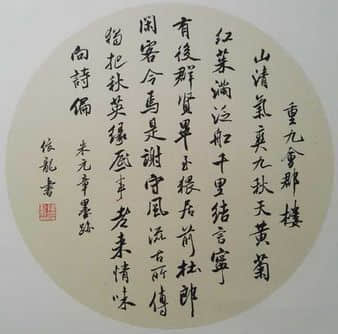 重九會郡樓
山清氣爽九秋天黃菊
紅茱滿泛船千里結言寧
有後群賢畢至猥居前杜郎
閑客今焉是謝守風流古所傳
獨把秋英緣底事老來情味
向詩偏
米元章墨跡
龍書